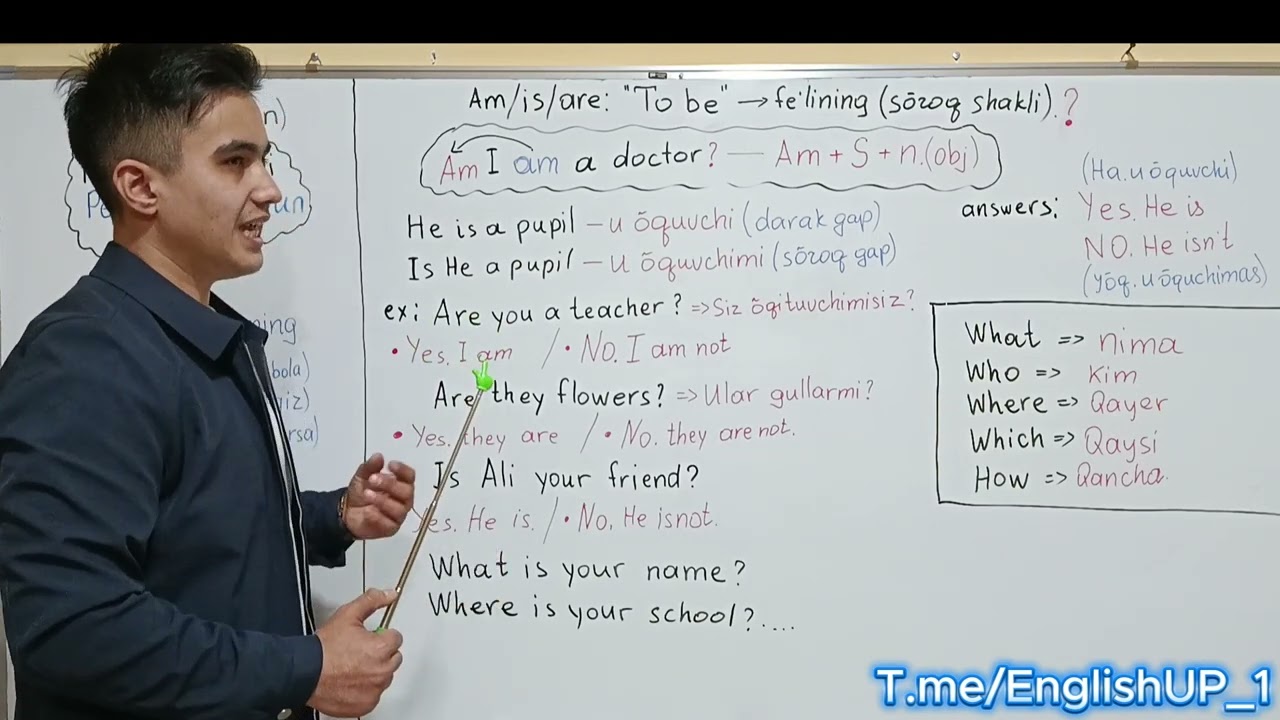 Am/is/are: "To be" → fe'lining (sōroq shakli).?
Am I am a doctor? — Am + S + n.(obj)
He is a pupil – u ōquvchi (darak gap)
Is He a pupil – u ōquvchimi (sōroq gap)
ex: Are you a teacher? => Siz ōqituvchimisiz?
• Yes. I am / • No. I am not
Are they flowers? => Ular gullarmi?
• Yes. they are / • No. they are not.
Is Ali your friend?
Yes. He is. / • No. He isnot.
What is your name?
Where is your school?....
(Ha. u ōquvchi)
answers: Yes. He is
NO. He isn't
(yōq. u ōquchimas)
What => nima
Who => kim
Where => Qayer
Which => Qaysi
How => Qancha.
n)
un
ning
bola)
iz)
rsa)
T.me/EnglishUP_1